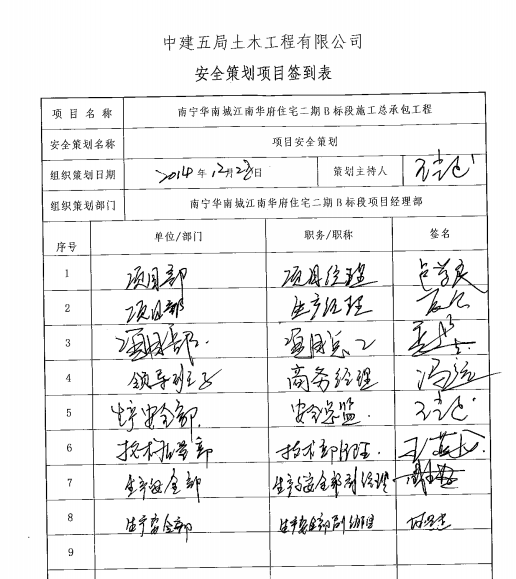 中建五局土木工程有限公司
安全策划项目签到表
项目名称 南宁华南城江南华府住宅二期B标段施工总承包工程
安全策划名称 项目安全策划
组织策划日期 2014年12月28日 策划主持人
组织策划部门 南宁华南城江南华府住宅二期B标段项目经理部
序号 单位/部门 职务/职称 签名
1 项目部 项目经理
2 项目部 生产经理
3 项目部 项目总工
4 领导班子 商务经理 冯远
5 生产安全部 安全总监
6 技术质量部 技术部
7 生产安全部 生产安全部副经理
8 生产安全部 生产安全部副经理
9